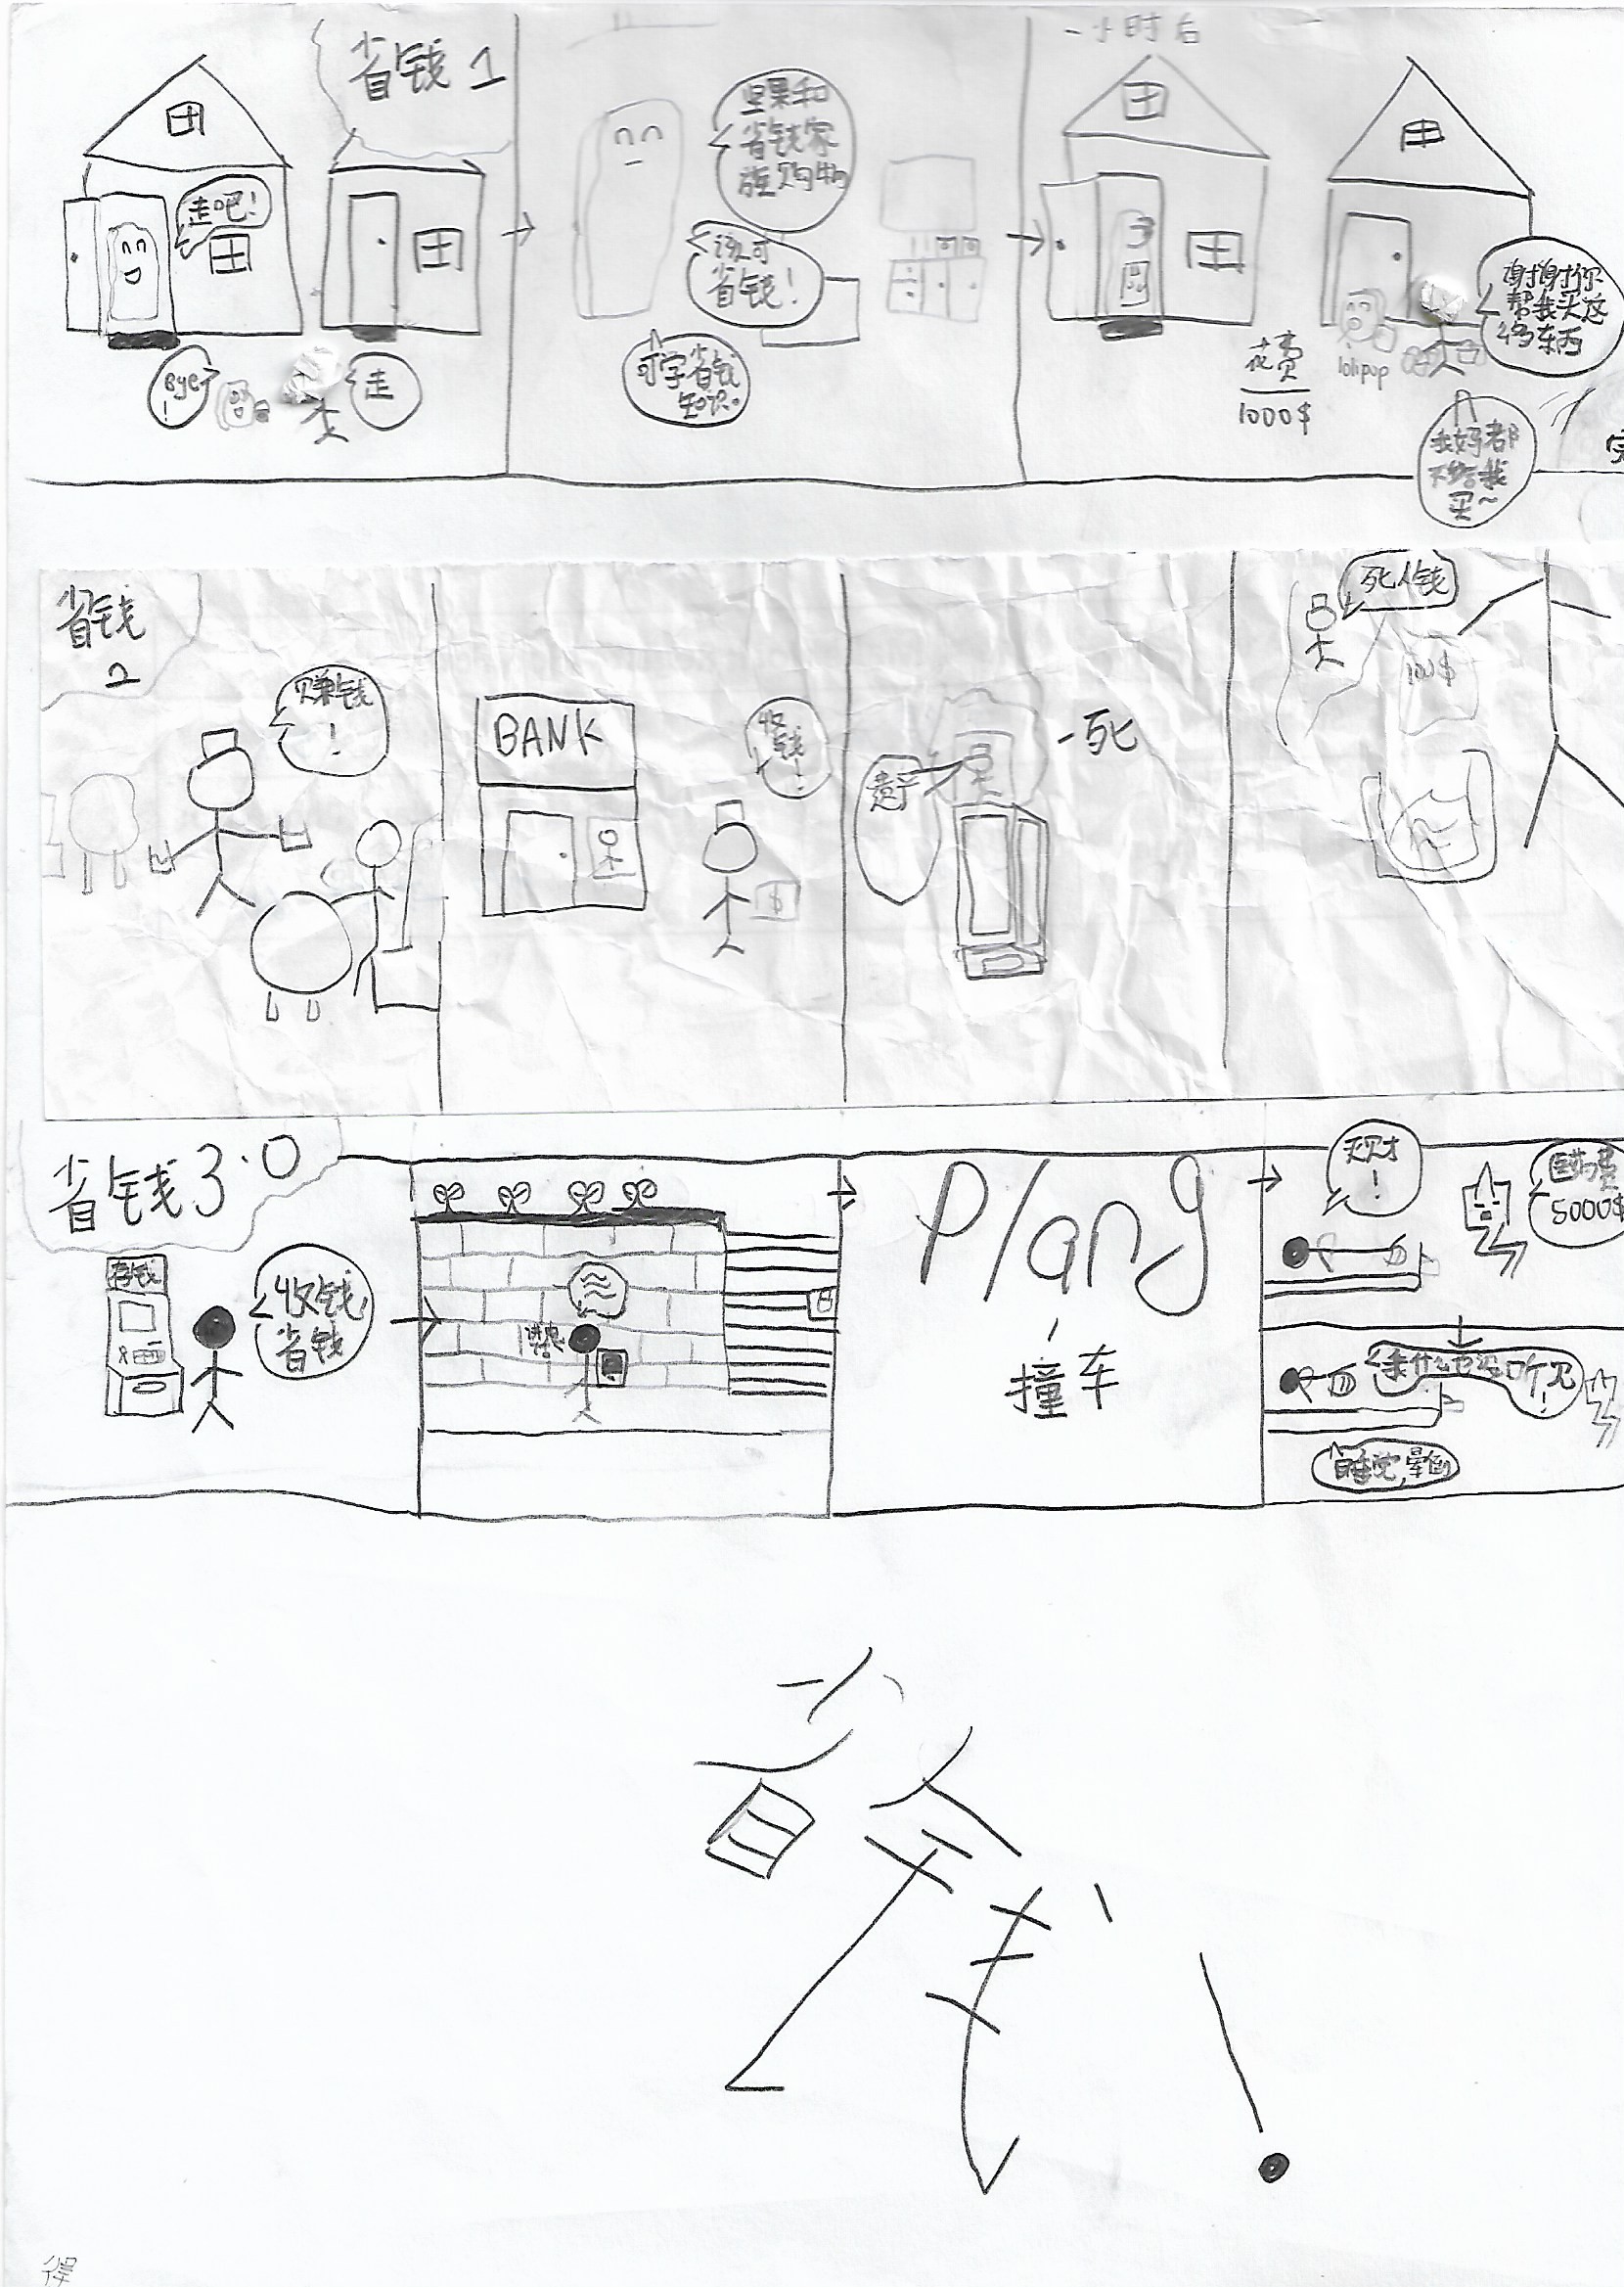 省钱 1
走吧！
Bye
！
走
坚果和
省钱家
族购物
该可
省钱！
可学省钱
知识。
一小时后
花费
1000$
lolipop
谢谢你
帮我买这
么多东西
我妈都
不给我
买～
完
省钱
2
赚钱
！
BANK
收
钱
！
$
遗产
-死
死人钱
100$
省钱3.0
存钱
收钱,
省钱
Plang
撞车
天才
！
医药费
5000$
我什么也没听见
！
省钱！
得